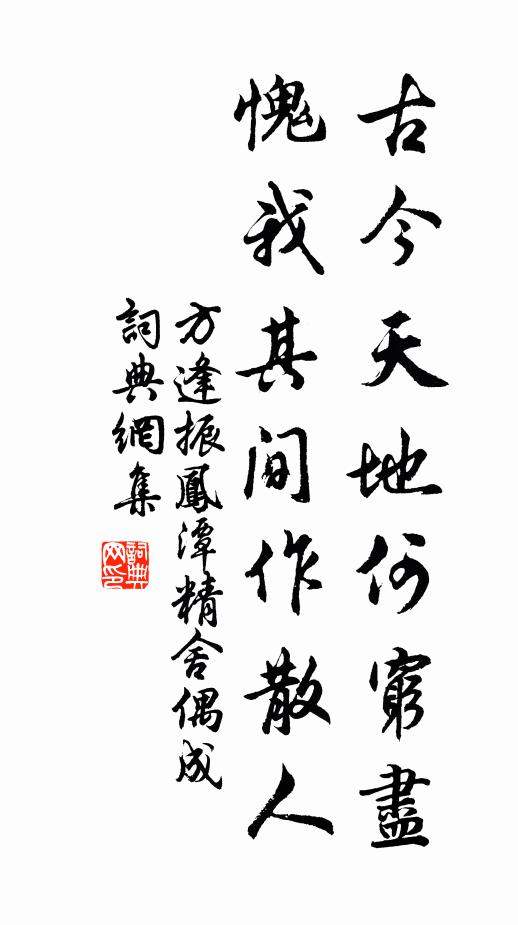 古今天地何窮盡
愧我其間作散人
方逢振鳳潭精舍偶成
詞典網集
詞典
网印